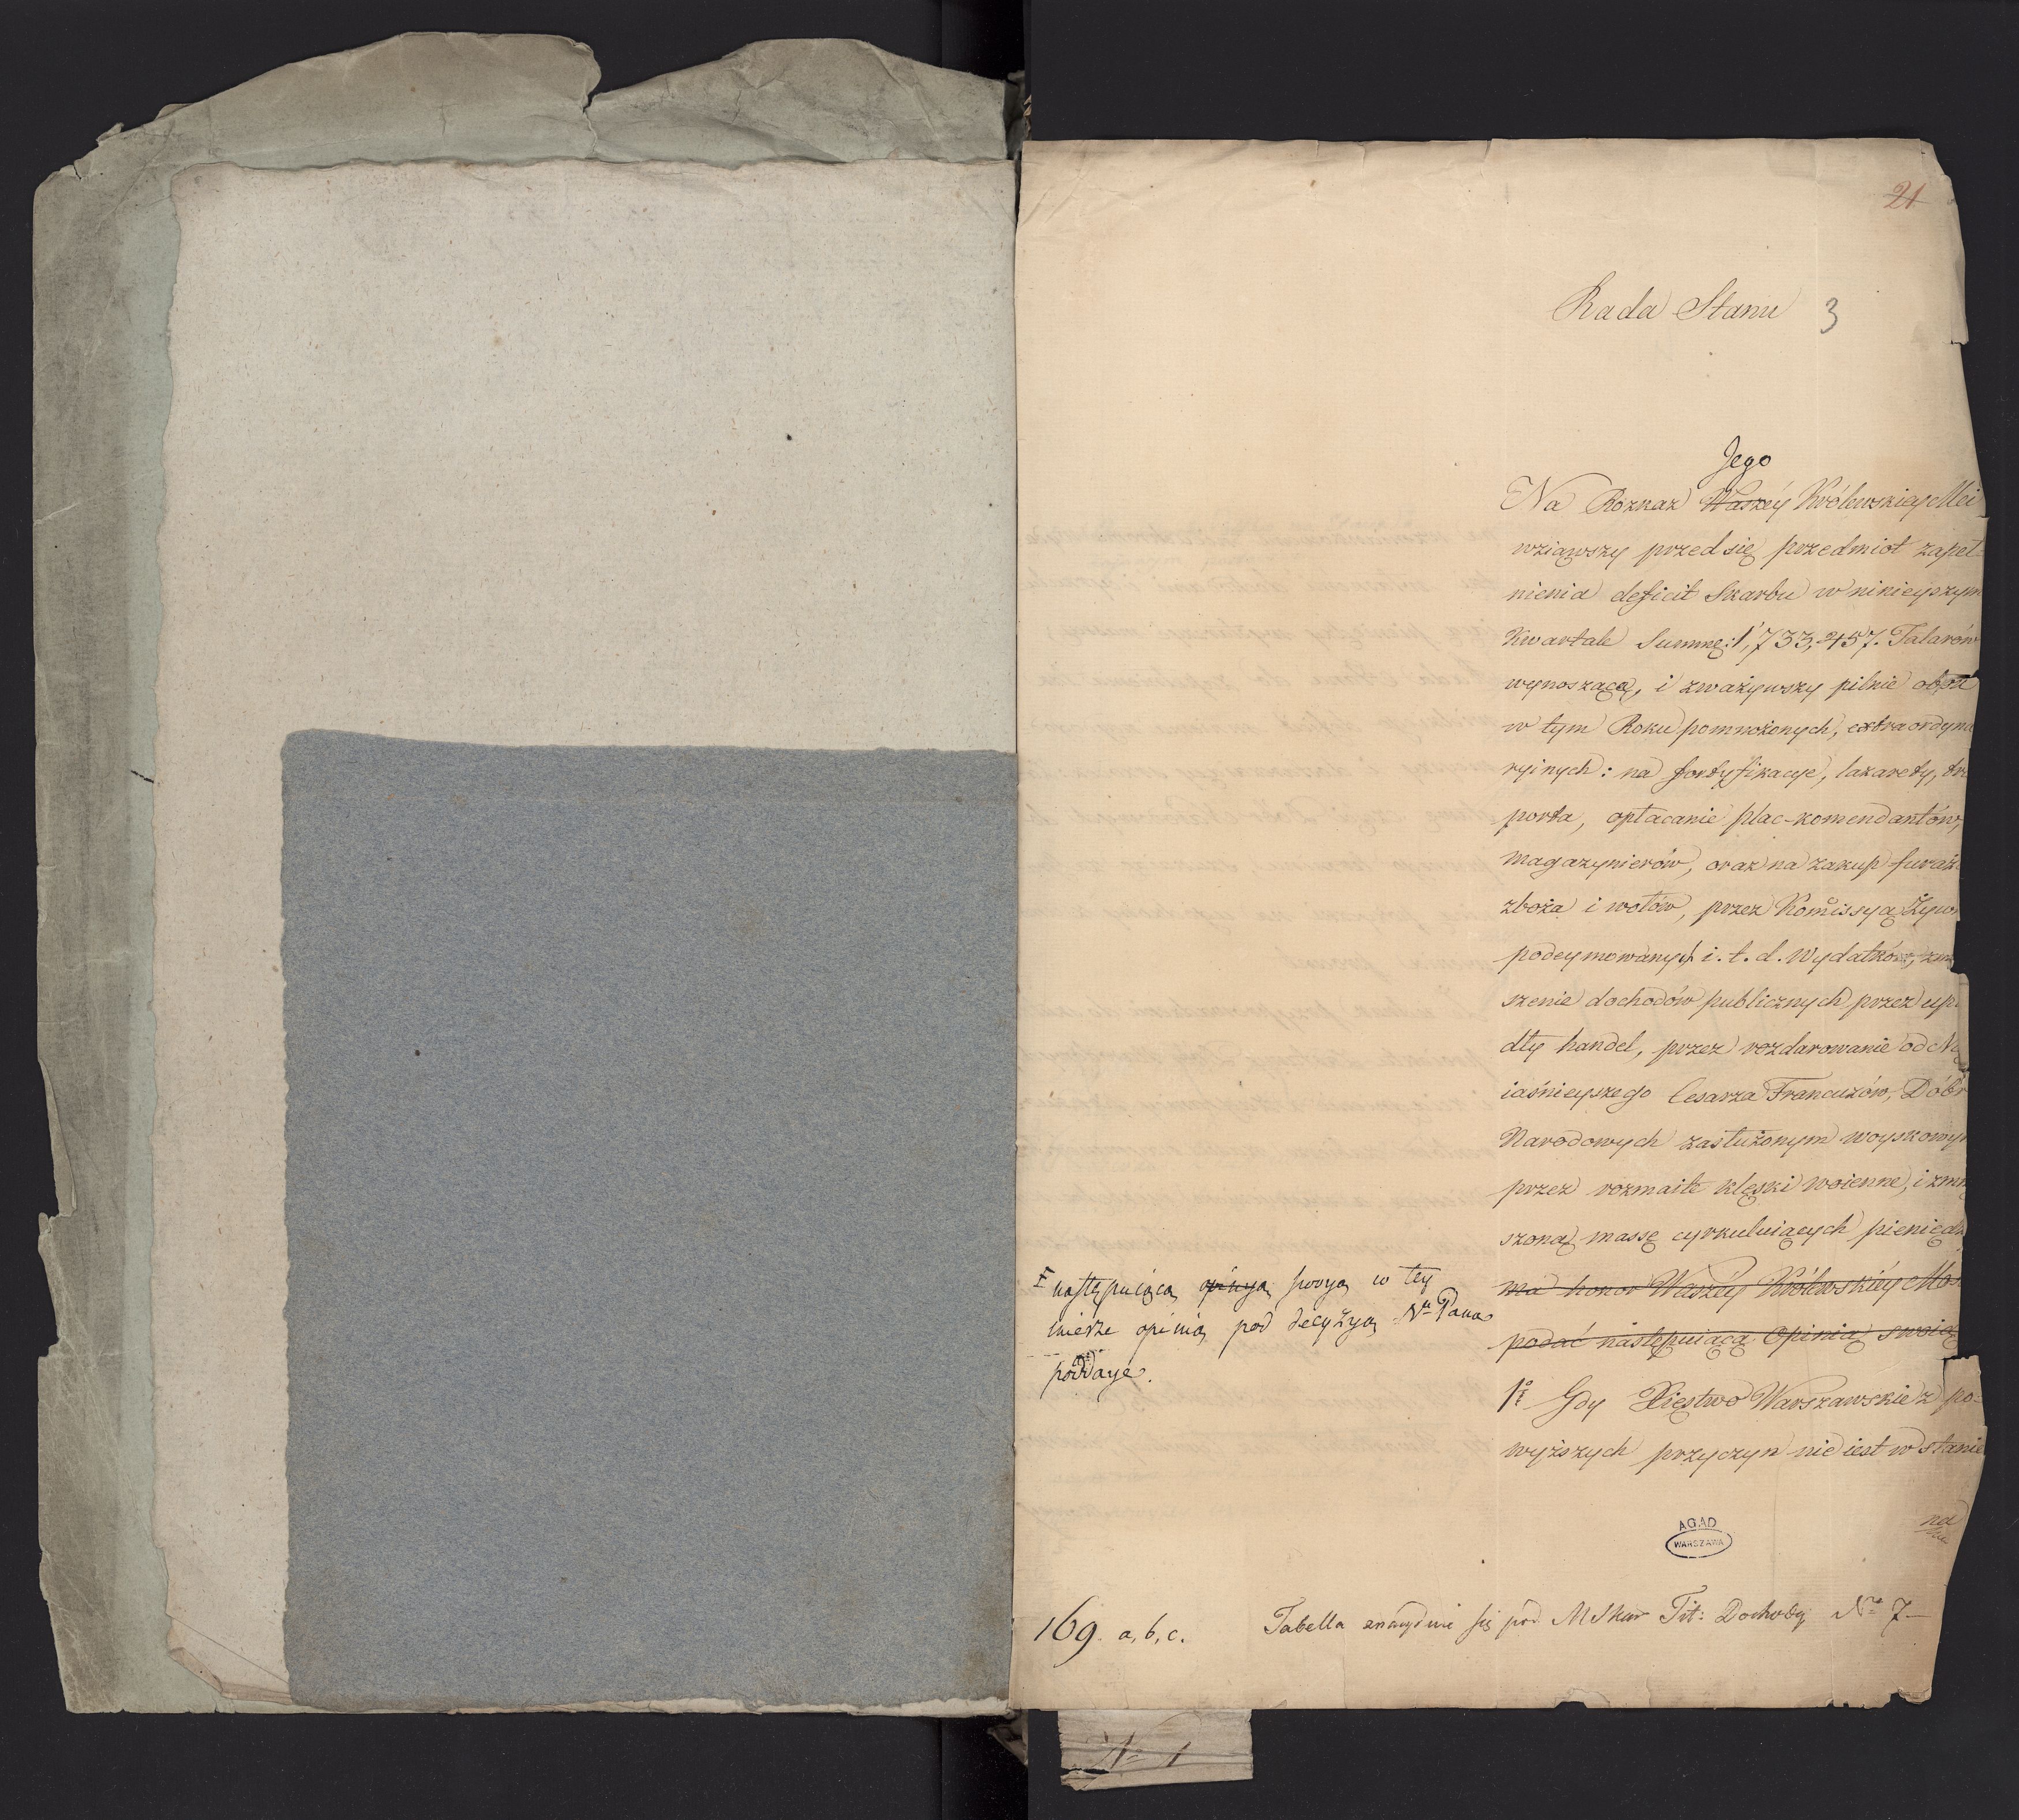 21
Rada Stanu 3
Jego
Na Rozkaz Waszéy Królewskiey Mci
wziąwszy przed się przedmiot zapeł-
nienia deficit Skarbu w ninieyszym
Kwartale Summę: 1,733,457. Talarów
wynoszącą, i zważywszy pilnie obok
w tym Roku pomnożonych, extraordyna
ryinych: na fortyfikacye, lazarety, tr
porta, opłacanie plac-komendantów,
magazynierów, oraz na zakup furaż
zboża i wołów, przez Kommissyą Żyw
podeymowanych i. t. d. Wydatków, zm
szenie dochodów publicznych przez up
dły handel, przez rozdarowanie od N
iaśnieyszego Cesarza Francuzów, Dóbr
Narodowych zasłużonym woyskowy
przez rozmaite klęski woienne, i zmn
szoną massę cyrkuluiących pieniędz
ma honor Waszéy Królewskiéy Mo
podać następuiącą Opinią swoią
następuiącą opinyą swoyą w tey
mierze opinią pod decyzyą Nu Pana
poddaye.
1º Gdy Xięstwo Warszawskie z po-
wyższych przyczyn nie iest w stanie
na
AGAD
WARSZAWA
169. a, b, c. Tabella znayduie się pod MSkar Tit: Dochody Nro 7
No 1